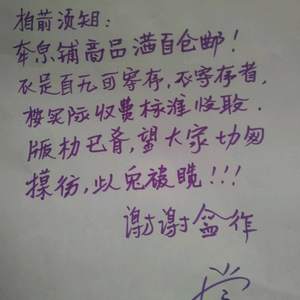 拍前须知:
本京铺商品满百包邮!
不足百元可寄存,不寄存者,
按实际收费标准收取.
版权已肴,望大家切勿
摸彷,以免被魇!!!
谢谢合作